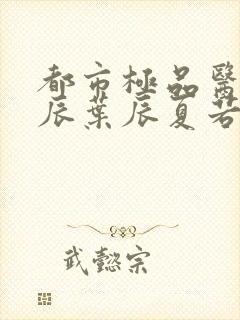 都市極品醫
辰葉辰夏若
武懿宗